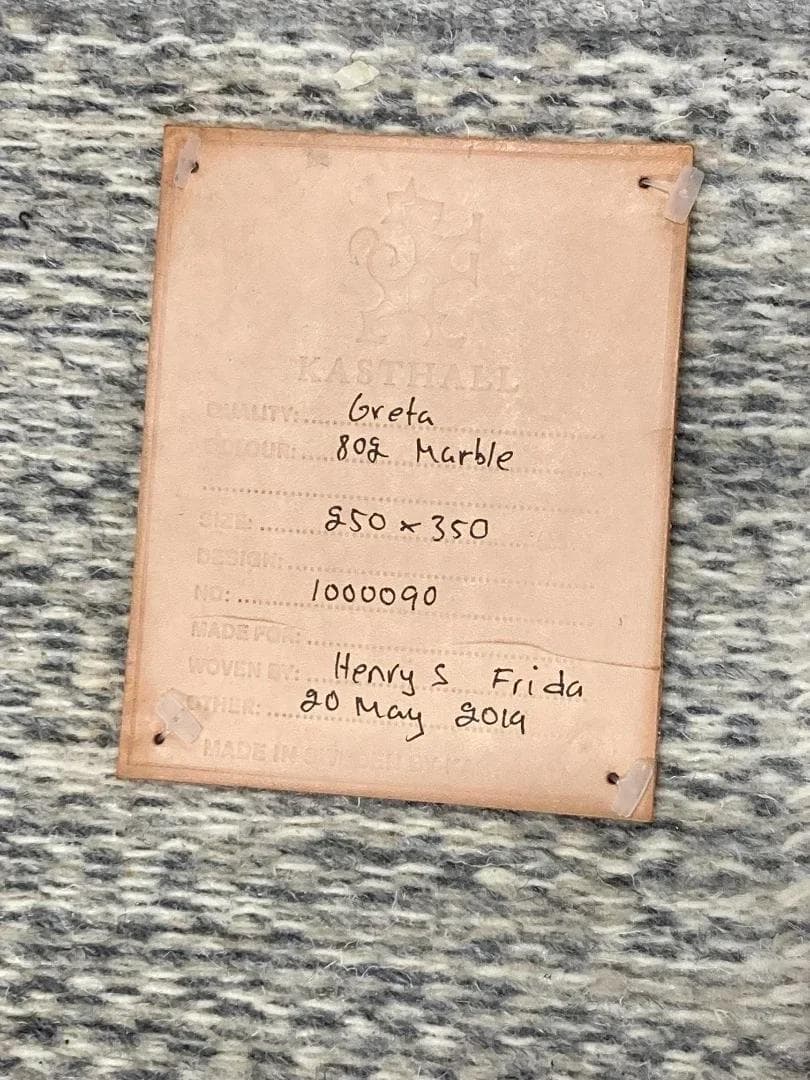 KASTHALL
QUALITY: Greta
COLOUR: 802 Marble
SIZE: 250 x 350
DESIGN:
NO: 1000090
MADE FOR:
WOVEN BY: Henry S Frida
OTHER: 20 May 2019
MADE IN SWEDEN BY